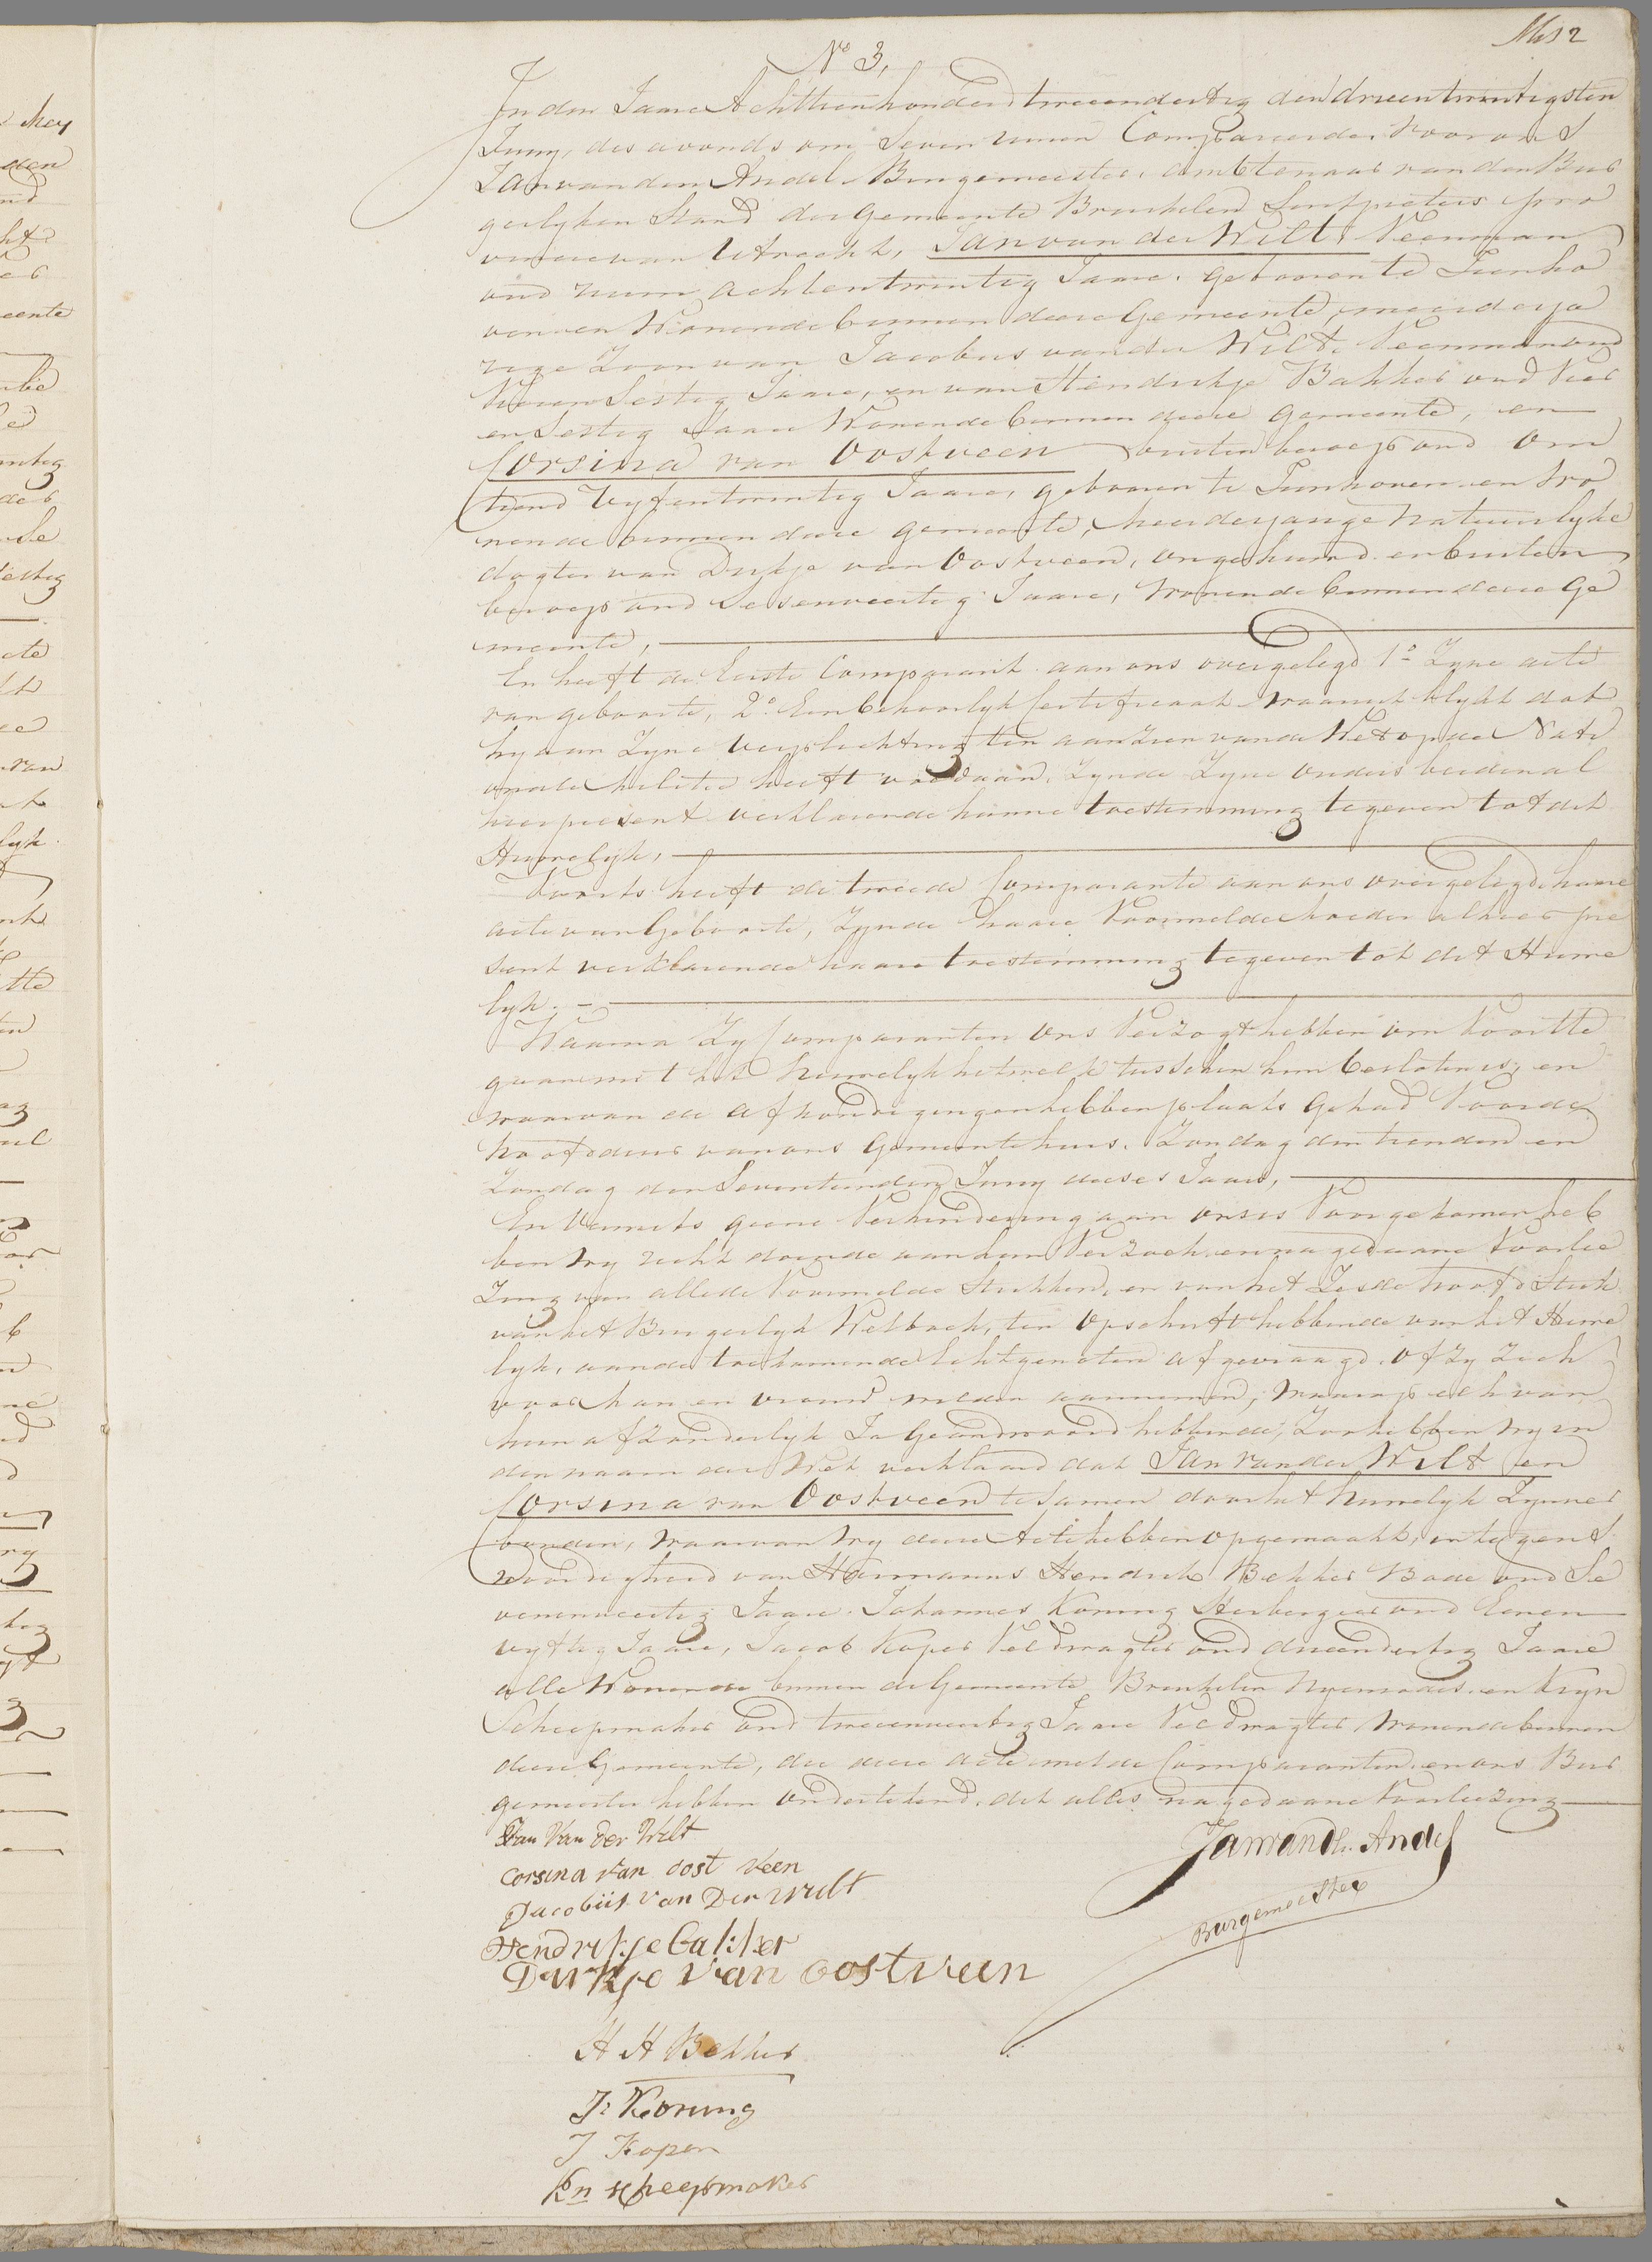 No 3,
In den Jaare Achttienhonderd tweeendertig den drieentwintigsten
Juny, des avonds om Seven uuren Compareerden voor ons
Jan van den Andel Burgemeester, ambtenaar van den Bur
gerlyken Stand der Gemeente Breukelen Sintpieters pro
vincie van Utrecht, Jan van der Wilt, Veenman
oud ruim achtentwintig Jaare, gebooren te Tienho
ven en Wonende binnen deese Gemeente, meerderja
rige Zoon van Jacobus van der Wilt, Veenman oud
Sestig Jaare, en van Hendrikje Bakker oud Vier
en Sestig Jaare Wonende binnen deese Gemeente, en
Corsina van Oostveen buiten beroep oud Om
trend Vyfentwintig Jaare, gebooren te Tienhoven en Wo
nende binnen deese gemeente, meerderjarige Natuurlyke
dogter van Dirkje van Oostveen, ongehuwd en buiten
beroep oud Sesenveertig Jaare, Wonende binnen deese Ge
meente,
En heeft de Eerste Comparant aan ons overgelegd 1o Zyne acte
van geboorte, 2o Een behoorlyk Certificaat waaruit blykt dat
hy aan Zyne Verplichting ten aanzien van de Wet op de Nati
onale Militie heeft voldaan, Zynde Zyne Ouders beidenal
hier present verklarende hunne toestemming te geven tot dit
Huwelyk,
Voorts heeft de tweede Comparante aan ons overgelegd haare
acte van Geboorte, Zynde haare Voormelde Moeder alhier pre
sent verklarende haare toestemming te geven tot dit Huwe
lyk.
Waarna Zy Comparanten Ons Verzogt hebben om Voort te
gaan met het Huwelyk hetwelk tusschen hun beslooten is, en
waarvan de afkondigingen hebben plaats gehad Voor de
hoofddeur van ons Gemeentehuis, Zondag den tienden en
Zondag den Seventienden Juny deeses Jaars,
En Vermits geene Verhindering aan onses Voorgekomen heb
ben wy recht doende aan hun Verzoek en na gedaane Voorlee
Zing van alle de Voormelde Stukken, en van het Zesde hoofd Stuk
van het Burgerlyk Wetboek, ten Opschrift hebbende van het Huwe
lyk, aan de toekomende Echtgenoten afgevraagd, of Zy Zich
voor man en vrouw wilden aannemen, waarop elk van
hun afzonderlyk Ja Geandwoord hebbende, Zoo hebben wy in
den naam der Wet verklaard dat Jan van der Wilt en
Corsina van Oostveen te Samen door het huwelyk Zyn ver
bonden, waarvan wy deese Acte hebben opgemaakt, in tegens
woordigheid van Harmanus Hendrik Bekker Bode oud Se
venenveertig Jaare, Johannes Koning Herbergier oud Eenen
vyftig Jaare, Jacob Koper Veldwagter oud drieendertig Jaare
alle Wonende binnen de Gemeente Breukelen Nyenrodes, en Kryn
Scheepmaker oud tweeenveertig Jaare Veldwagter Wonende binnen
deese Gemeente, die deese acte met de Comparanten en ons Bur
gemeester hebben Ondertekend, dit alles na gedaane Voorleezing
Jan Van der Wilt
Corsina van oost veen
Jacobus van Der Wilt
Hendrikje Bakker
Dirkje van oostveen
H H Bekker
J. Koning
J Koper
Kn scheepmaker
Jan van dn. Andel
Burgemeester